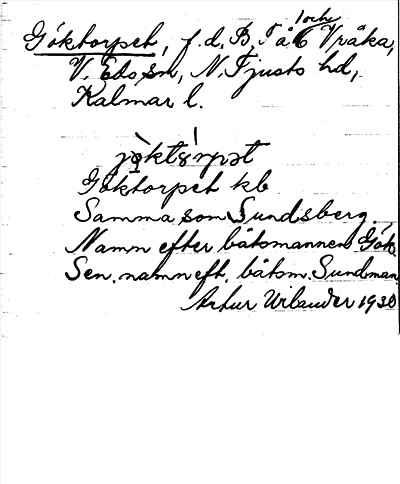 Göktorpet, f. d. B. T å 6 1 och Vråka,
V. Eds sn, N. Tjusts hd,
Kalmar l.
Göktorpet kb
Samma som Sundsberg.
Namn efter båtsmannen Gök.
Sen. namn eft. båtsm. Sundman.
Artur Urlander 1930